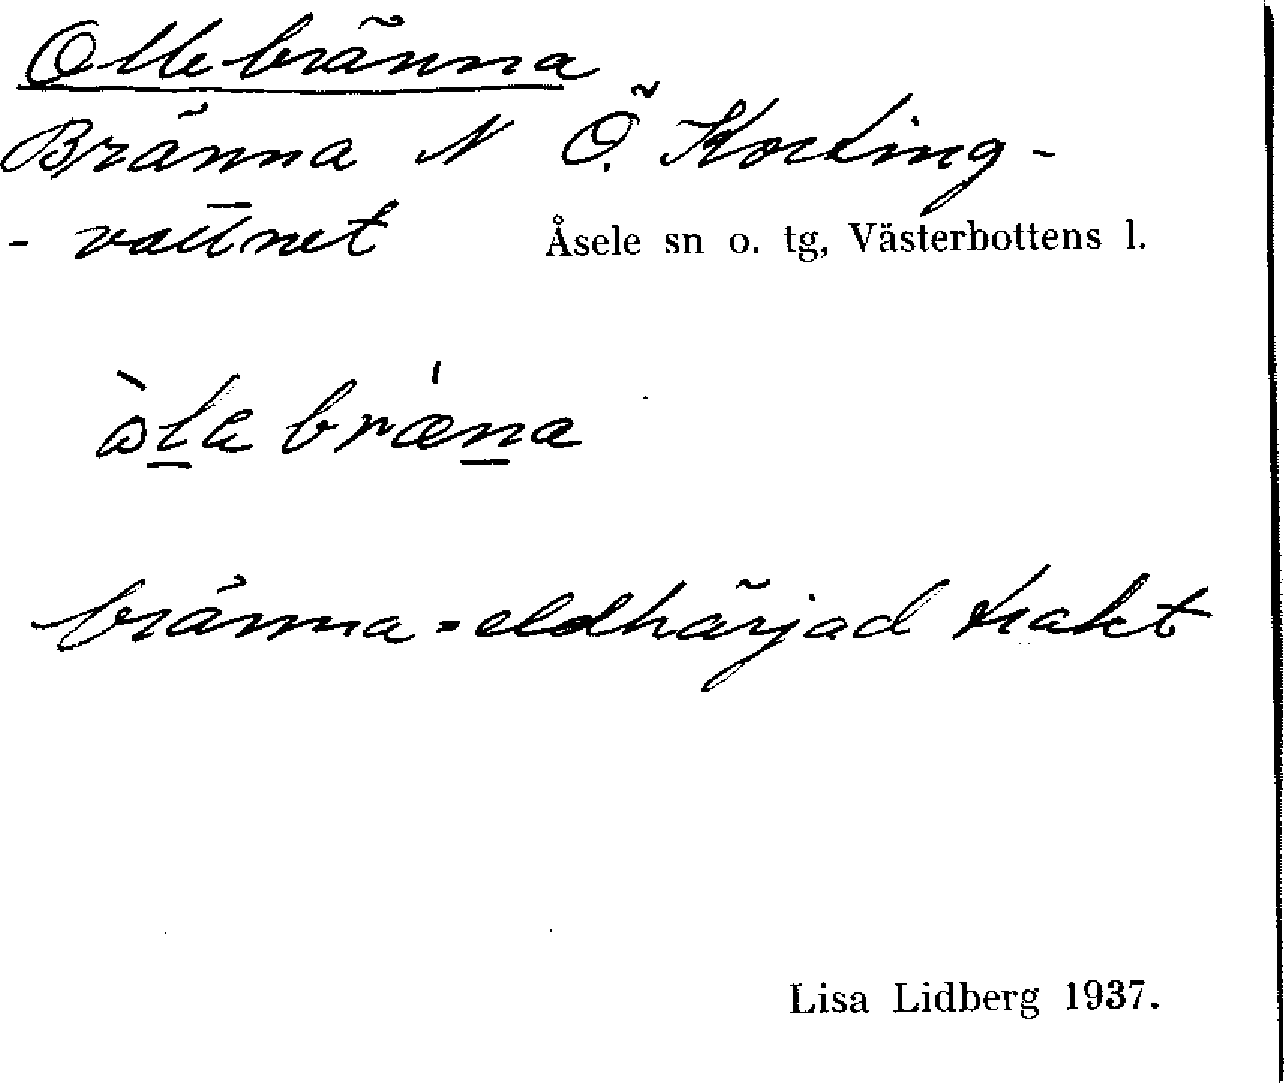 Ollebränna
Bränna N Ö. Korting-
- vattnet Åsele sn o. tg, Västerbottens l.
òla bræ̀na
bränna = eldhärjad trakt
Lisa Lidberg 1937.